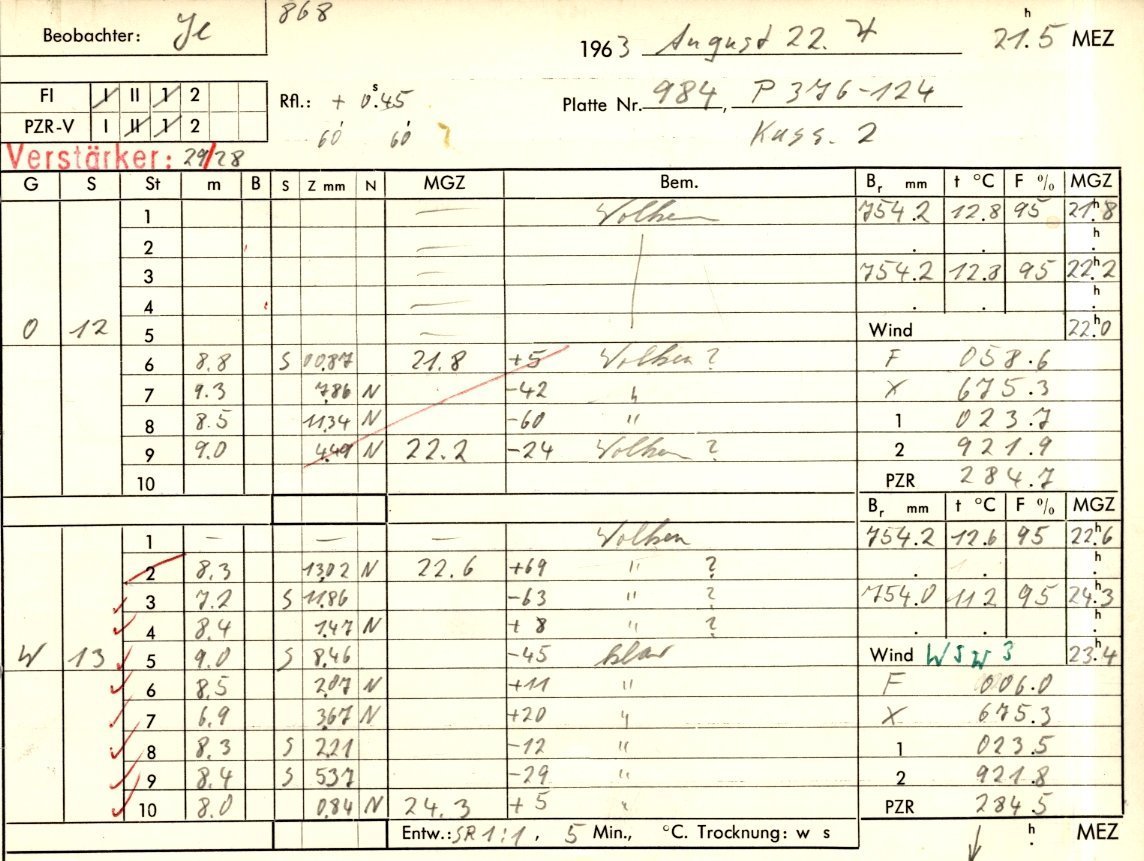 868
Beobachter: Je
1963 August 22. 21.5 h MEZ
FI I II 1 2
PZR-V I II 1 2
Rfl.: + 0.45 s
60 60 ?
Platte Nr. 984, P 376-124
Kass. 2
Verstärker: 29/28
G S St m B S Z mm N MGZ Bem. Br mm t °C F % MGZ
1 — Wolken 754.2 12.8 95 21.8 h
2 — . . . h
3 — 754.2 12.8 95 22.2 h
4 — . . . h
0 12 5 — Wind 22.0 h
6 8.8 S 00.87 21.8 +5 Wolken ? F 058.6
7 9.3 7.86 N -42 " X 675.3
8 8.5 11.34 N -60 " 1 023.7
9 9.0 4.49 N 22.2 -24 Wolken ? 2 921.9
10 PZR 284.7
Br mm t °C F % MGZ
1 — — — Wolken 754.2 12.6 95 22.6 h
2 8.3 13.02 N 22.6 +69 " ? . . . h
3 7.2 S 11.86 -63 " ? 754.0 11.2 95 24.3 h
4 8.4 1.47 N + 8 " ? . . . h
W 13 5 9.0 S 8.46 -45 klar Wind WSW 3 23.4 h
6 8.5 2.07 N +11 " F 006.0
7 6.9 3.67 N +20 " X 675.3
8 8.3 S 2.21 -12 " 1 023.5
9 8.4 S 5.37 -29 " 2 921.8
10 8.0 0.84 N 24.3 + 5 " PZR 284.5
Entw.: SR 1:1, 5 Min., °C. Trocknung: w s h . MEZ